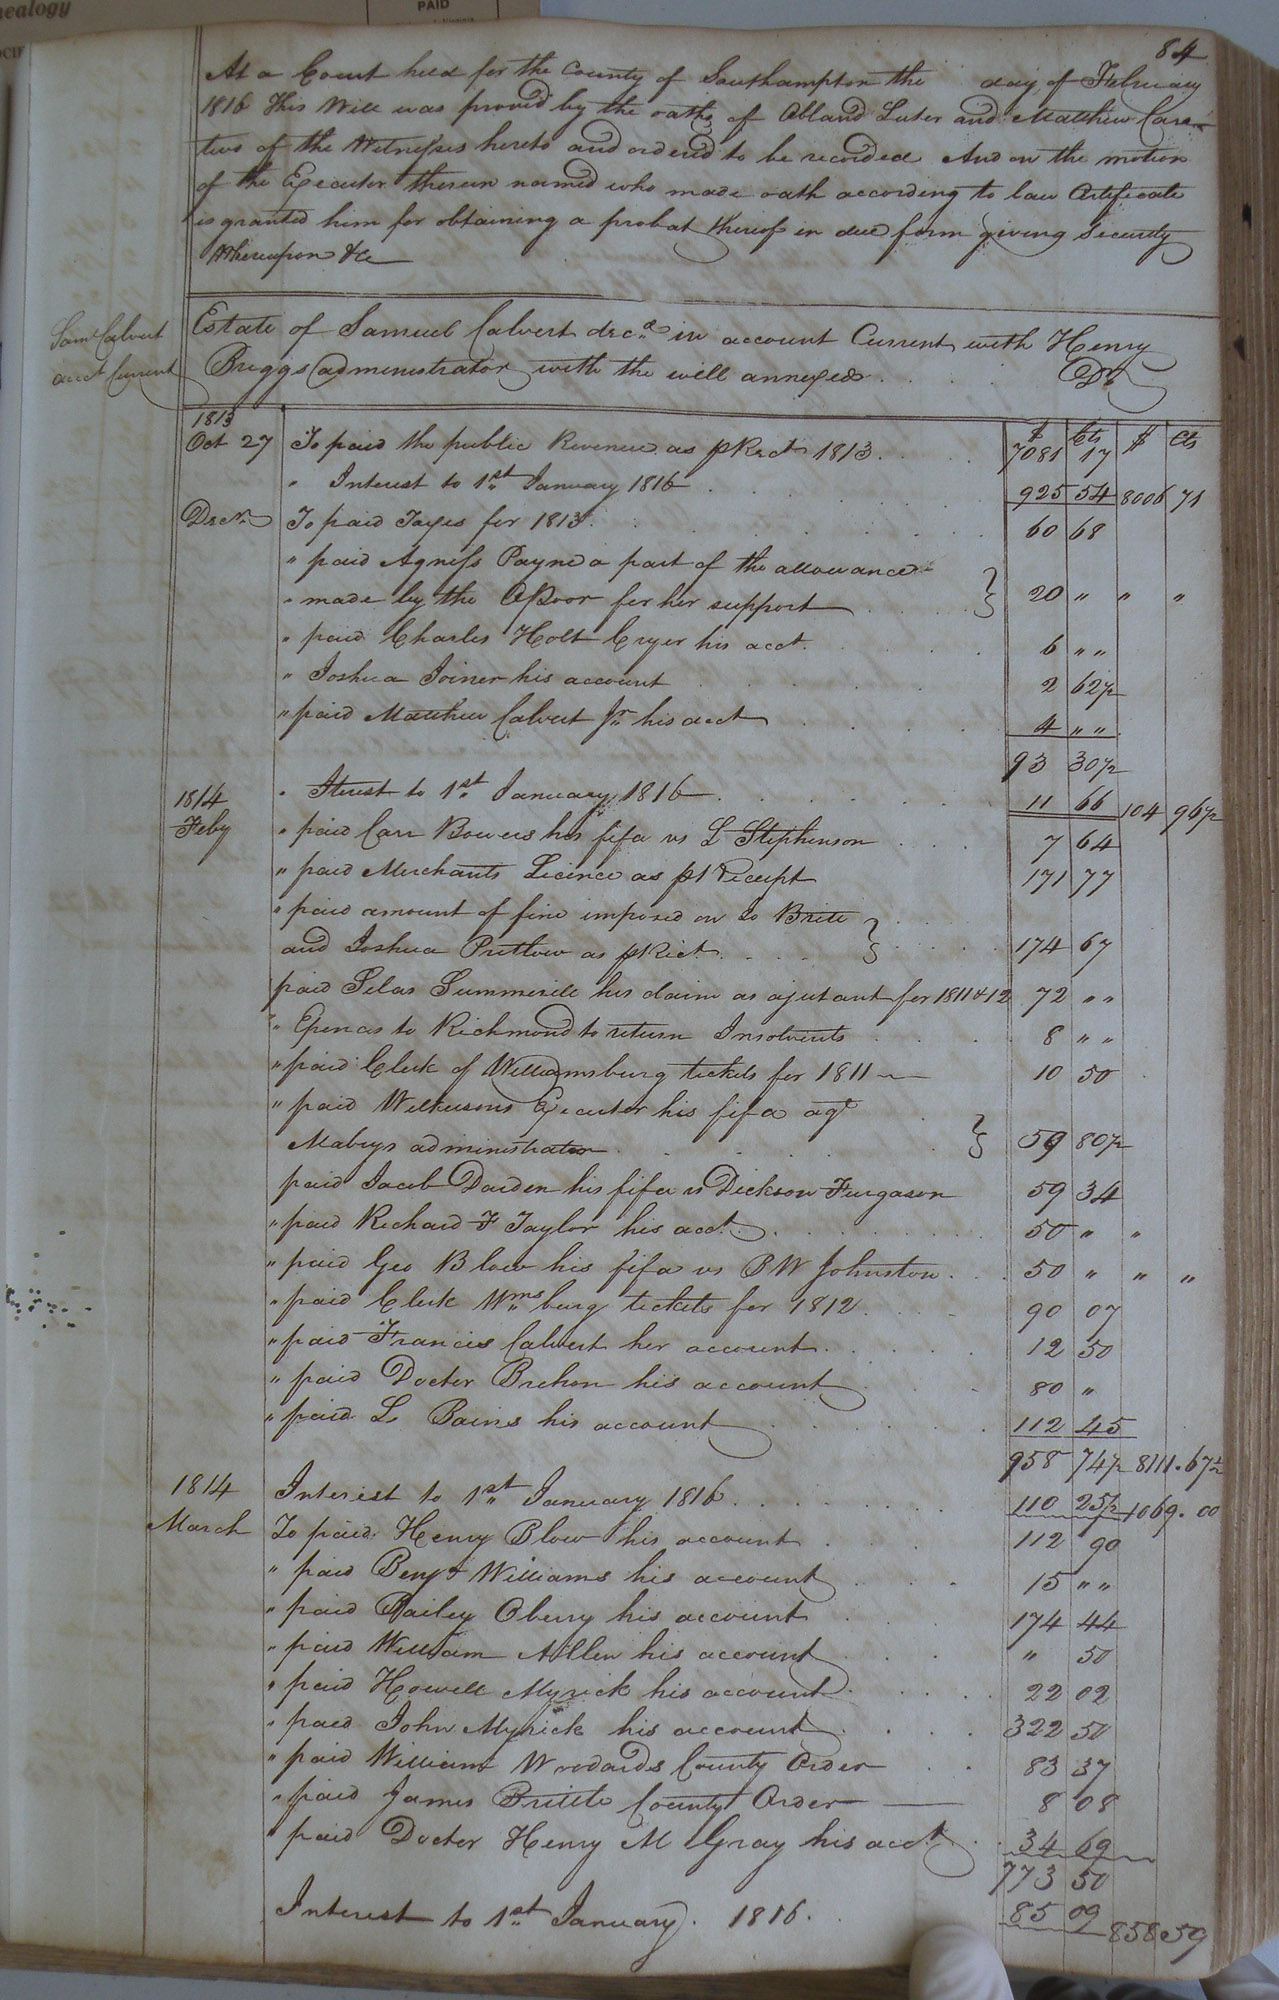 nealogy
PAID
84
At a Court held for the County of Southampton the day of February
1816 This Will was proved by the oaths of Abland Luter and Matthew Carr
two of the Witnesses hereto and ordered to be recorded And on the motion
of the Executor therein named who made oath according to law Certificate
is granted him for obtaining a probat thereof in due form giving Security
Whereupon &c
Saml Calvert
acct Current
Estate of Samuel Calvert decd. in account Current with Henry
Briggs administrator with the will annexed Dr.
1813 $ Cts $ Cts
Oct 27 To paid the public Revenue as pRect 1813 7081 17
" Interest to 1st January 1816 925 54 8006 71
Decr. To paid Taxes for 1813 60 68
" paid Agness Payne a part of the allowance
" made by the Poor for her support } 20 " " "
" paid Charles Holt Cryer his acct. 6 " "
" Joshua Joiner his account 2 62½
" paid Matthew Calvert Jr. his acct 4 " "
93 30½
1814 " Iterest to 1st January 1816 11 66 104 96½
Feby " paid Carr Bowers his fifa vs L Stephenson 7 64
" paid Merchants Licence as pr Receipt 171 77
" paid amount of fine imposed on Jo Brite
and Joshua Pretlow as pRect } 174 67
paid Silas Summerell his claim as ajutant for 1811 & 12 72 " "
" Expences to Richmond to return Insolvents 8 " "
" paid Clerk of Williamsburg tickets for 1811 10 50
" paid Wilkersons Executor his fifa agt
Mabrys administrator } 59 80½
paid Jacob Darden his fifa vs Dickson Furgason 59 34
" paid Richard F Taylor his acct. 50 " "
" paid Geo Blow his fifa vs P W Johnston 50 " " "
" paid Clerk Wmsburg tickets for 1812 90 07
" paid Francis Calvert her account 12 50
" paid Doctor Brehon his account 80 "
" paid L Bains his account 112 45
958 74½ 8111.67½
1814 Interest to 1st January 1816 110 25½ 1069.00
March To paid Henry Blow his account 112 90
" paid Benjn Williams his account 15 " "
" paid Bailey Oberry his account 174 44
" paid William Allen his account " 50
" paid Howell Myrick his account 22 02
" paid John Myrick his account 322 50
" paid William Woodards County Order 83 37
" paid James Brittle County Order 8 08
" paid Doctor Henry M Gray his acct 34 69
773 50
Interest to 1st January. 1816. 85 09 858 59